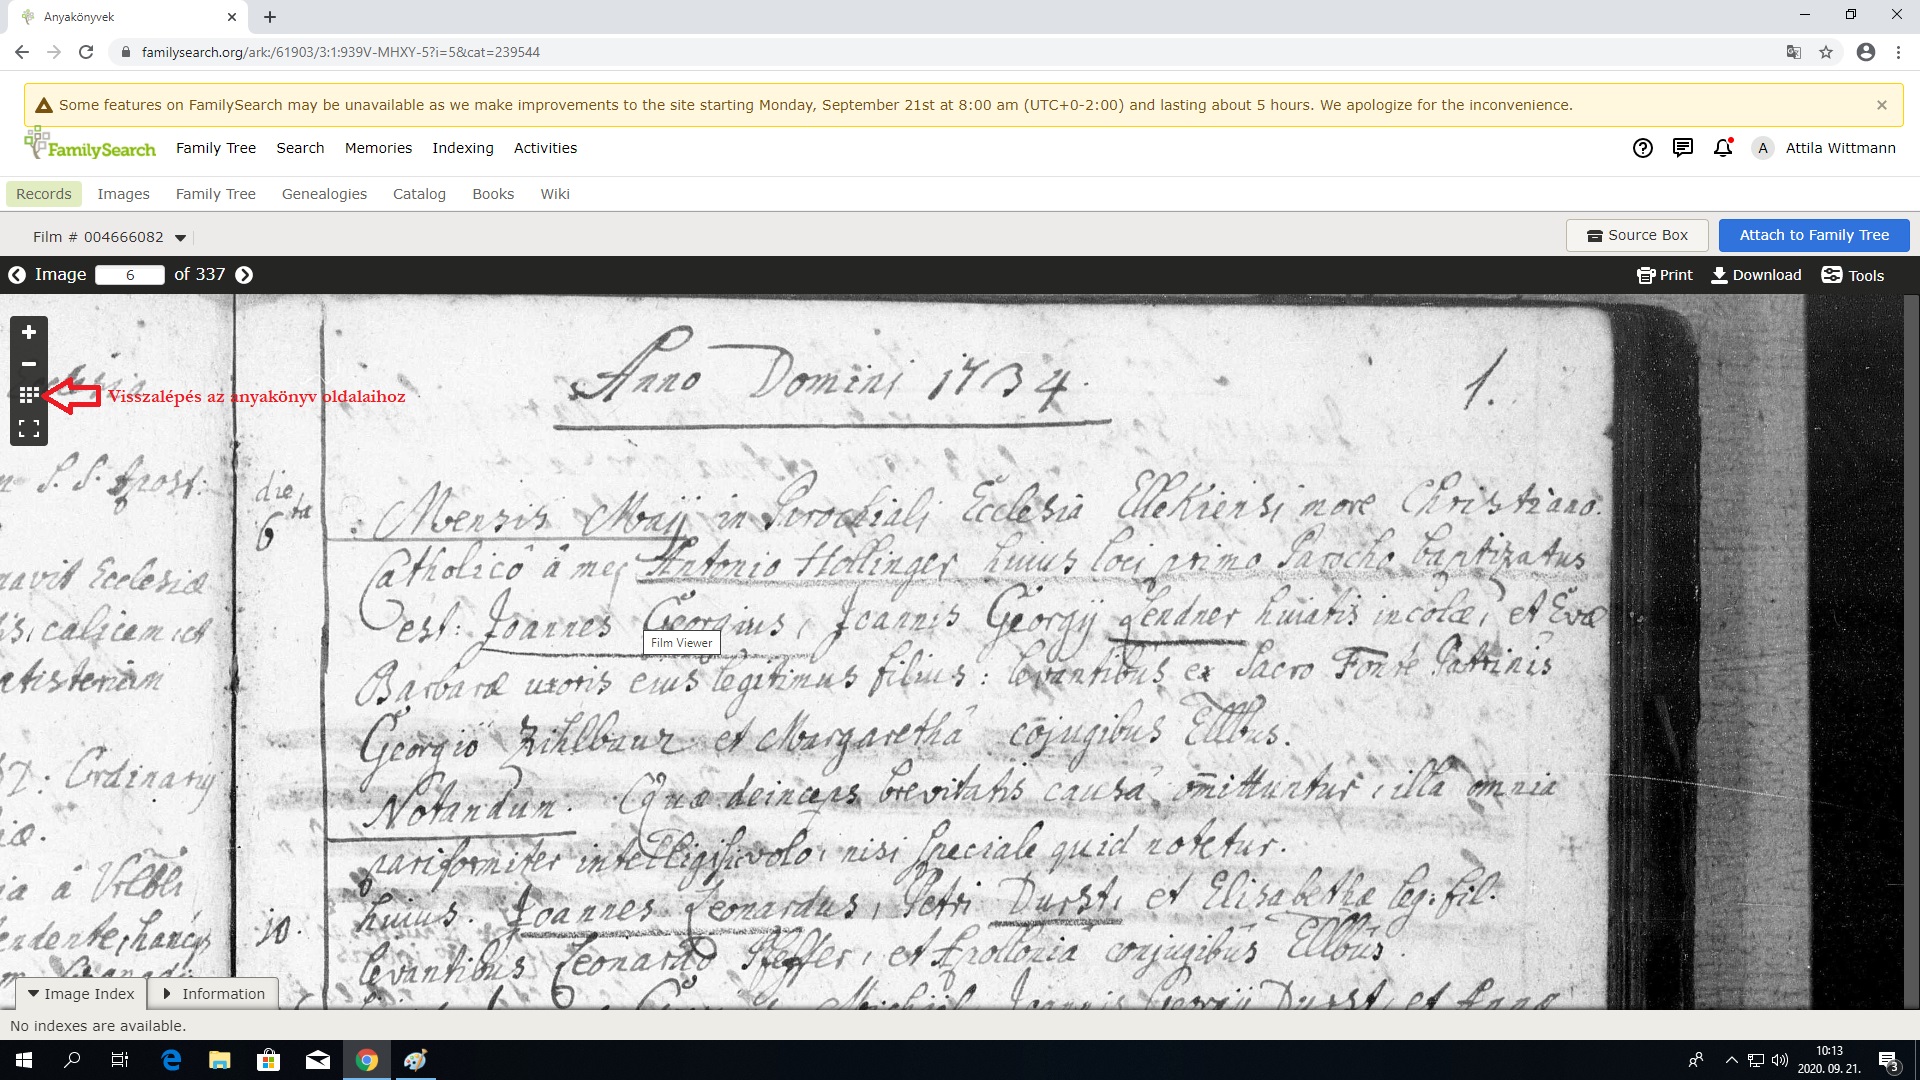 Anyakönyvek
familysearch.org/ark:/61903/3:1:939V-MHXY-5?i=5&cat=239544
Some features on FamilySearch may be unavailable as we make improvements to the site starting Monday, September 21st at 8:00 am (UTC+0-2:00) and lasting about 5 hours. We apologize for the inconvenience.
FamilySearch Family Tree Search Memories Indexing Activities A Attila Wittmann
Records Images Family Tree Genealogies Catalog Books Wiki
Film # 004666082 Source Box Attach to Family Tree
Image 6 of 337 Print Download Tools
Anno Domini 1734. 1.
Visszalépés az anyakönyv oldalaihoz
S. S. Apost:
die 6ta Mensis Maij in Parochiali Ecclesiâ Ellekiensi more Christiano.
Catholicô â me Antonio Hollinger huius loci primo Parocho baptizatus
est: Joannes Georgius, Joannis Georgij Lendner huiatis incolæ, et Evæ
Film Viewer
Barbaræ uxoris eius legitimus filius: levantibus ex Sacro Fonte Patrinis
Georgio Zihlbaur et Margarethâ cojugibus Ellbus.
Notandum. Quæ deinceps brevitatis causâ omittuntur, illa omnia
pariformiter intelligi volo, nisi speciale quid notetur.
10. huius. Joannes Leonardus, Petri Durst, et Elisabethæ leg: fil.
levantibus Leonardo Pfeffer, et Apollonia conjugibus Ellbus.
Joannis Georgij Durst, et Annæ
navit Ecclesiæ
calicem, et
Ordinarij
Image Index Information
No indexes are available.
10:13
2020. 09. 21.
3